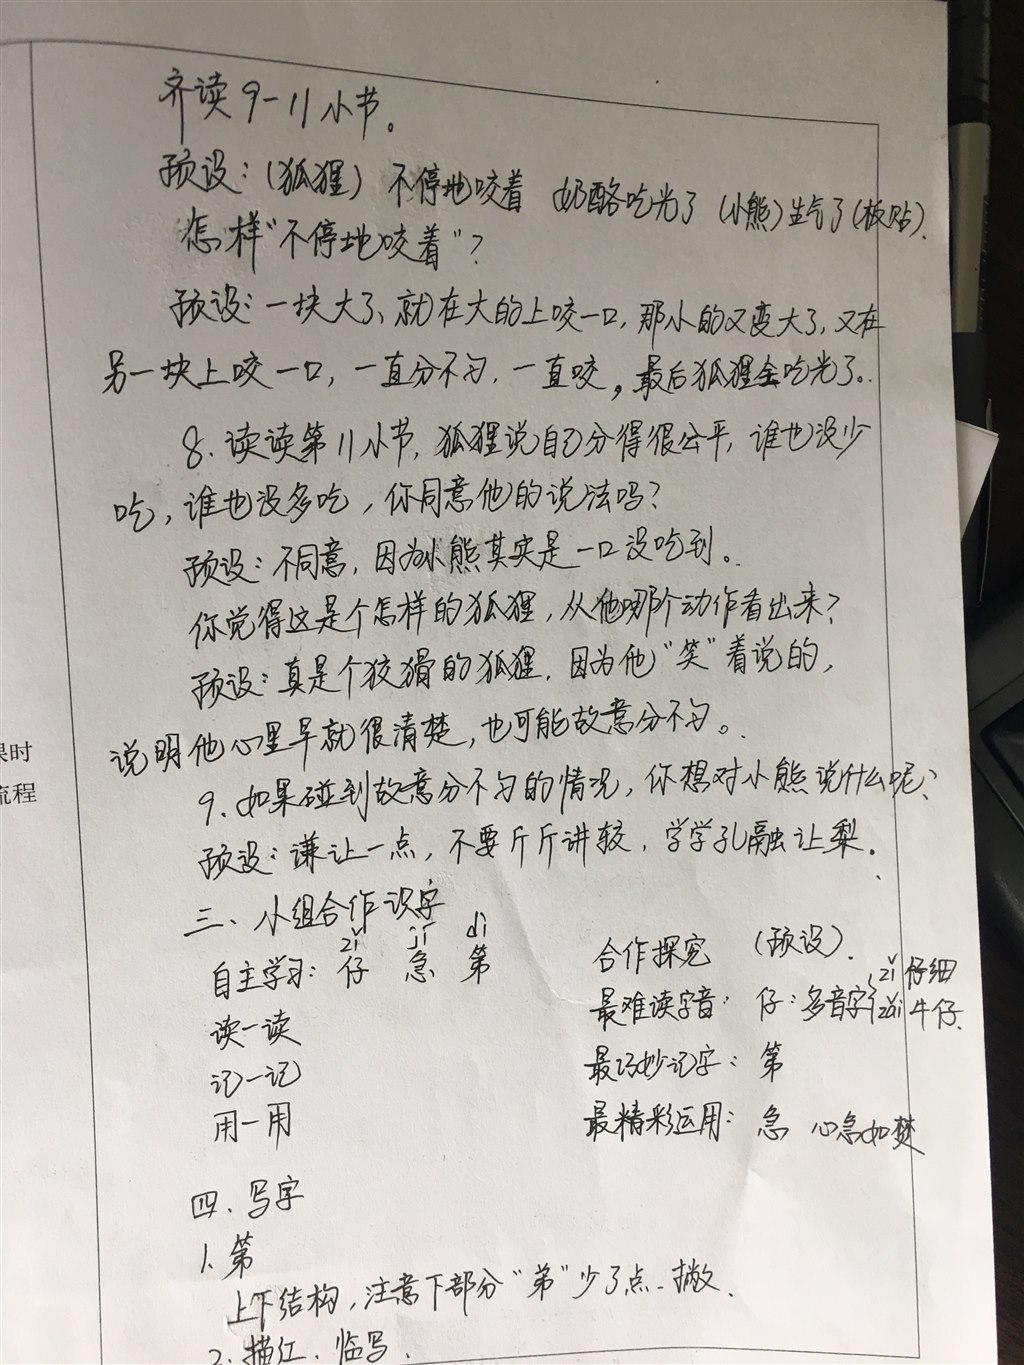 齐读9-11小节。
预设:(狐狸) 不停地咬着 奶酪吃光了 (小熊)生气了(板贴).
怎样"不停地咬着"?
预设:一块大了、就在大的上咬一口,那小的又变大了,又在
另一块上咬一口,一直分不匀,一直咬。最后狐狸全吃光了.
8.读读第11小节,狐狸说自己分得很公平,谁也没少
吃,谁也没多吃,你同意他的说法吗?
预设:不同意,因为小熊其实是一口没吃到.
你觉得这是个怎样的狐狸,从他哪个动作看出来?
预设:真是个狡猾的狐狸,因为他"笑"着说的,
说明他心里早就很清楚,也可能故意分不匀。
课时
流程
9.如果碰到故意分不匀的情况,你想对小熊说什么呢?
预设:谦让一点,不要斤斤讲较,学学孔融让梨.
三、小组合作识字
zǐ jí dì
自主学习: 仔 急 第
合作探究 (预设).
读一读
最难读字音: 仔:多音字{zǐ 仔细
zǎi 牛仔.
记一记
最巧妙记字: 第
用一用
最精彩运用: 急 心急如焚
四.写字
1.第
上下结构,注意下部分"弟"少了点、撇.
2.描红、临写.